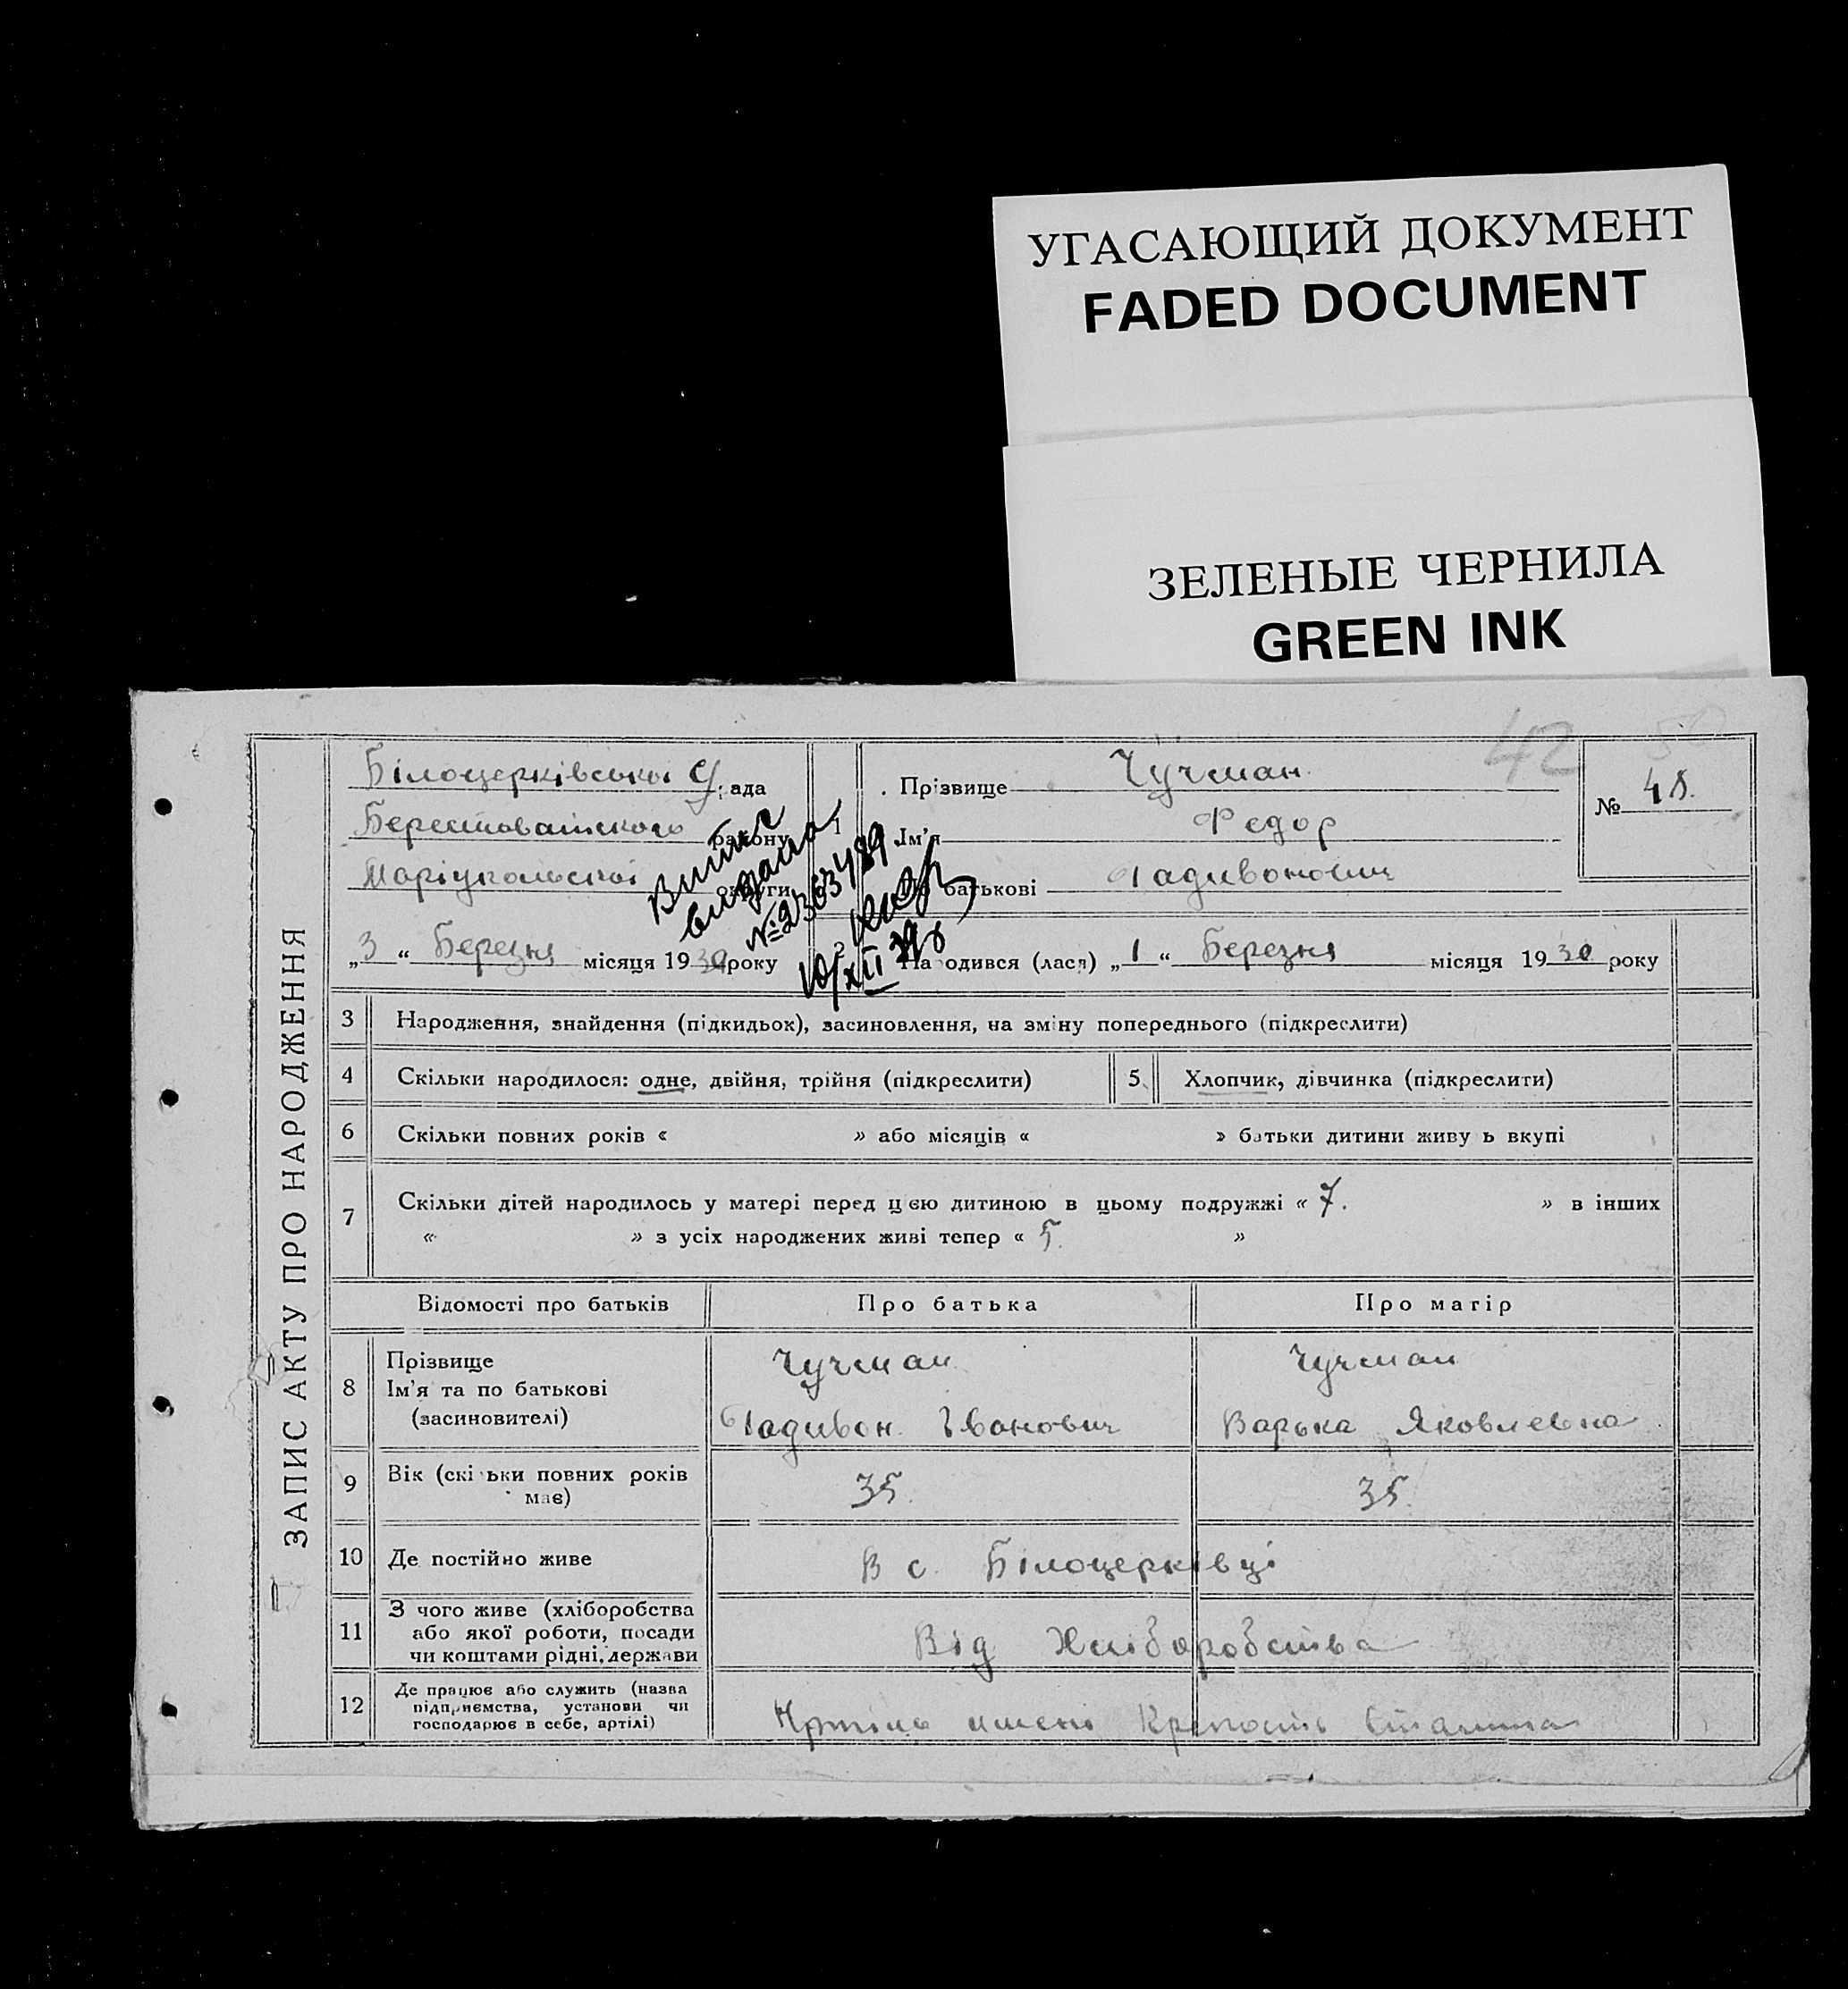 УГАСАЮЩИЙ ДОКУМЕНТ
FADED DOCUMENT
ЗЕЛЕНЫЕ ЧЕРНИЛА
GREEN INK
42
ЗАПИС АКТУ ПРО НАРОДЖЕННЯ
Білоцерківської С/ ада
Берестоватського району
Маріупольської округи
Витяг
видано
№ 2363489
10/XII 39 р
Прізвище Чучман
№ 48.
Ім'я Федор
По батькові Гадивонович
„3“ Березня місяця 1930 року
На одився (лася) „1“ Березня місяця 1930 року
3 Народження, знайдення (підкидьок), засиновлення, на зміну попереднього (підкреслити)
4 Скільки народилося: одне, двійня, трійня (підкреслити) 5 Хлопчик, дівчинка (підкреслити)
6 Скільки повних років « » або місяців « » батьки дитини живу ь вкупі
7 Скільки дітей народилось у матері перед цією дитиною в цьому подружжі « 7. » в інших
« » з усіх народжених живі тепер « 5 »
Відомості про батьків Про батька Про матір
8 Прізвище Чучман Чучман
Ім'я та по батькові
(засиновителі) Гадивон Іванович Варька Яковлевна
9 Вік (скі ьки повних років
має) 35. 35.
10 Де постійно живе В с. Білоцерківці
11 З чого живе (хліборобства
або якої роботи, посади
чи коштами рідні, держави Від Хліборобства
12 Де працює або служить (назва
підприємства, установи чи
господарює в себе, артілі) Артіль имені Крепость Сталина